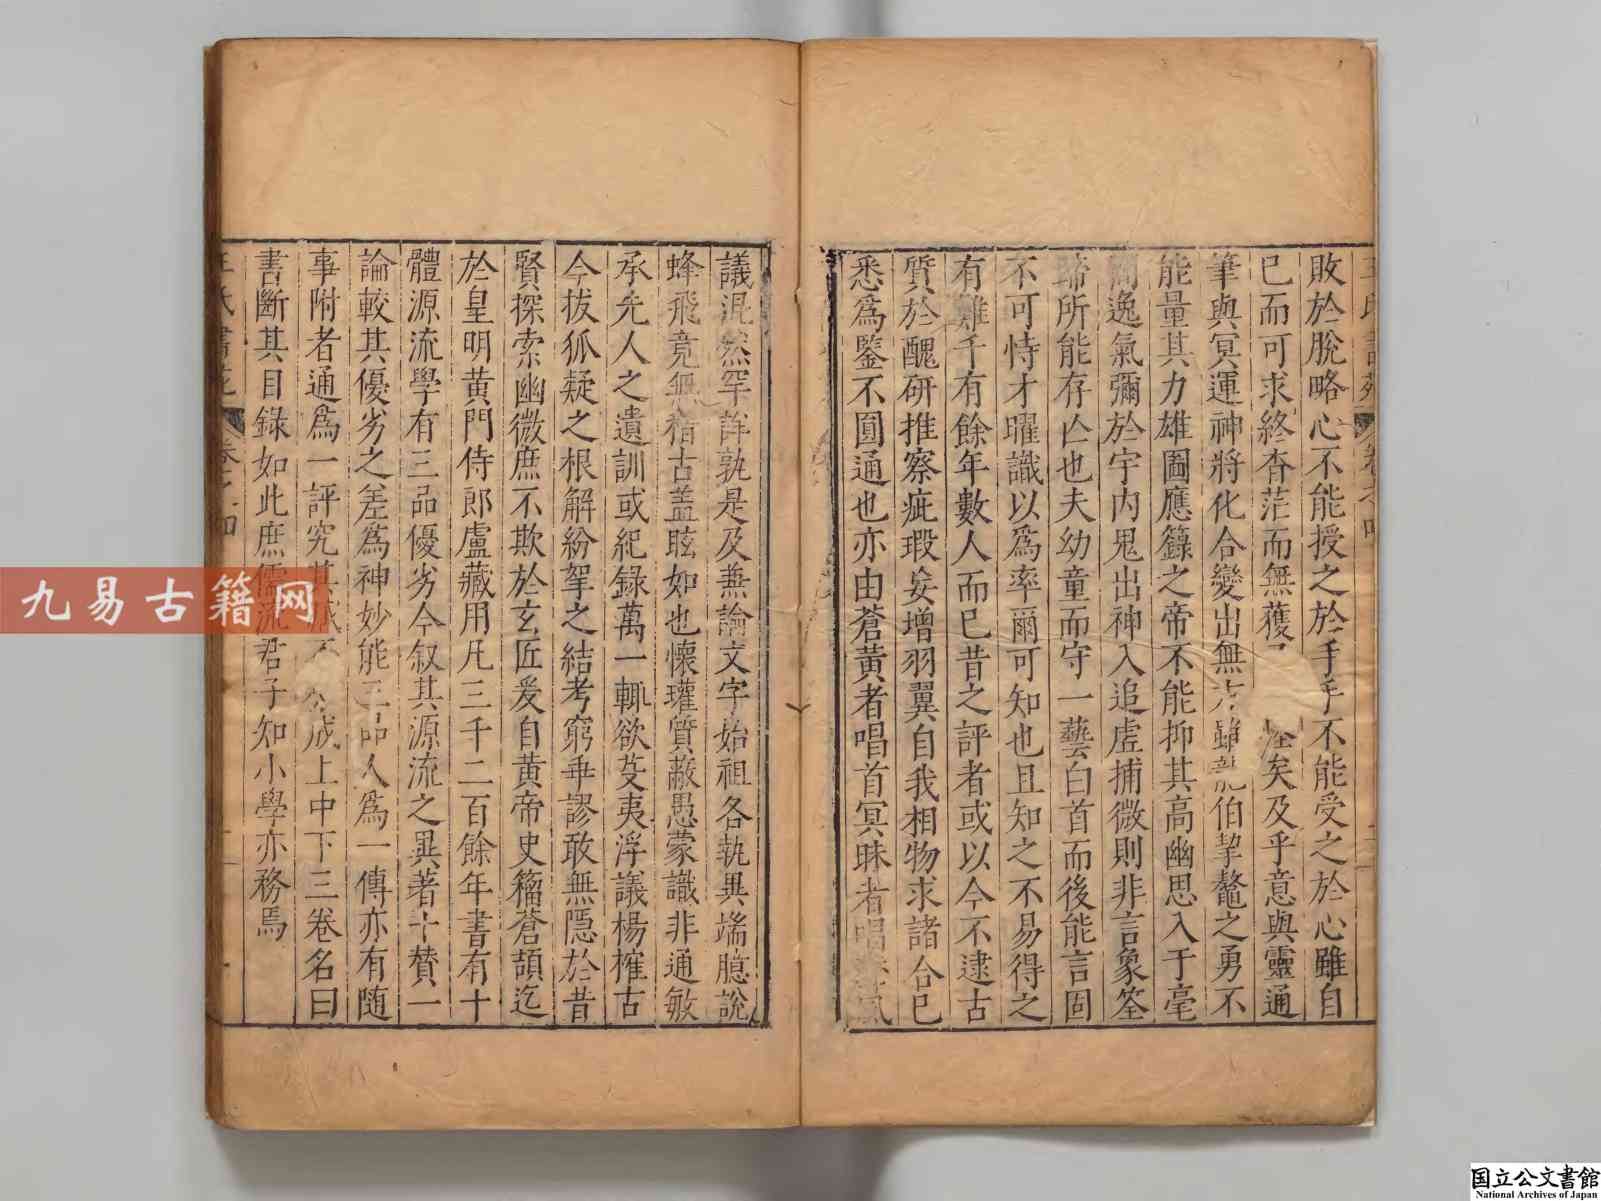 敗於脫略心不能授之於手手不能受之於心雖自
已而可求終杳茫而無獲 矣及乎意與靈通
筆與冥運神將化合變出無方雖龍伯挈鼇之勇不
能量其力雄圖應籙之帝不能抑其高幽思入于毫
間逸氣彌於宇內鬼出神入追虛捕微則非言象筌
蹄所能存亾也夫幼童而守一藝白首而後能言固
不可恃才曜識以為率爾可知也且知之不易得之
有難千有餘年數人而已昔之評者或以今不逮古
質於醜研推察疵瑕妄增羽翼自我相物求諸合已
悉為鑒不圓通也亦由蒼黃者唱首冥昧者唱 風
議混然罕詳孰是及兼論文字始祖各執異端臆說
蜂飛竟無稽古盖眩如也懷瓘質蔽愚蒙識非通敏
承先人之遺訓或紀錄萬一輙欲芟夷浮議楊榷古
今拔狐疑之根解紛挐之結考窮乖謬敢無隱於昔
賢探索幽微庶不欺於玄匠爰自黃帝史籒蒼頡迄
於皇明黃門侍郎盧藏用凡三千二百餘年書有十
體源流學有三品優劣今叙其源流之異著十贊一
論較其優劣之差為神妙能三品人為一傳亦有隨
事附者通為一評究其 成上中下三卷名曰
書斷其目錄如此庶儒流君子知小學亦務焉
王氏書苑 卷之四
九易古籍网
国立公文書館
National Archives of Japan